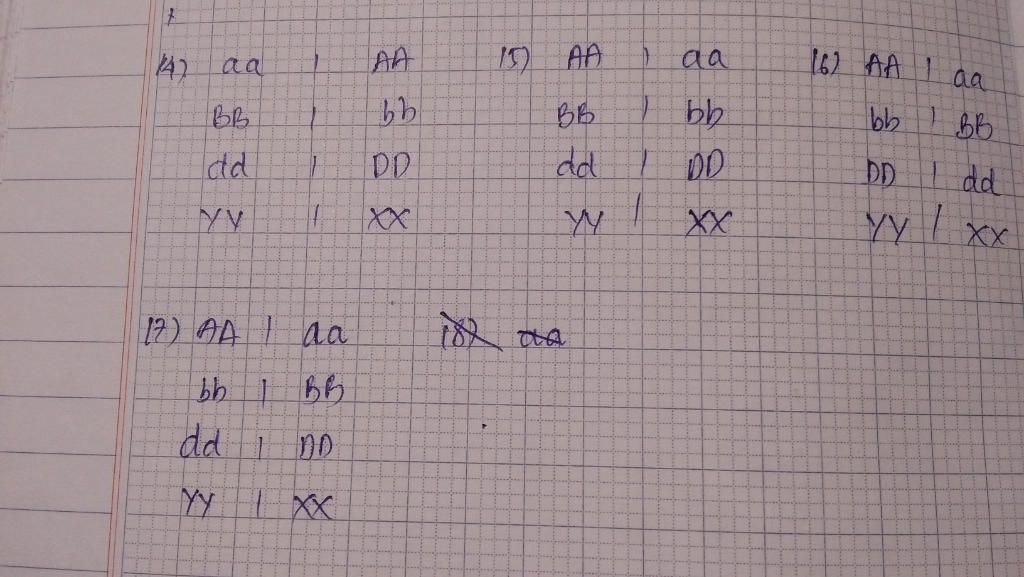 14) aa | AA 15) AA | aa 16) AA | aa
BB | bb BB | bb bb | BB
dd | DD dd | DD DD | dd
YY | XX YY | XX YY | XX
17) AA | aa 18) aa
bb | BB
dd | DD
YY | XX